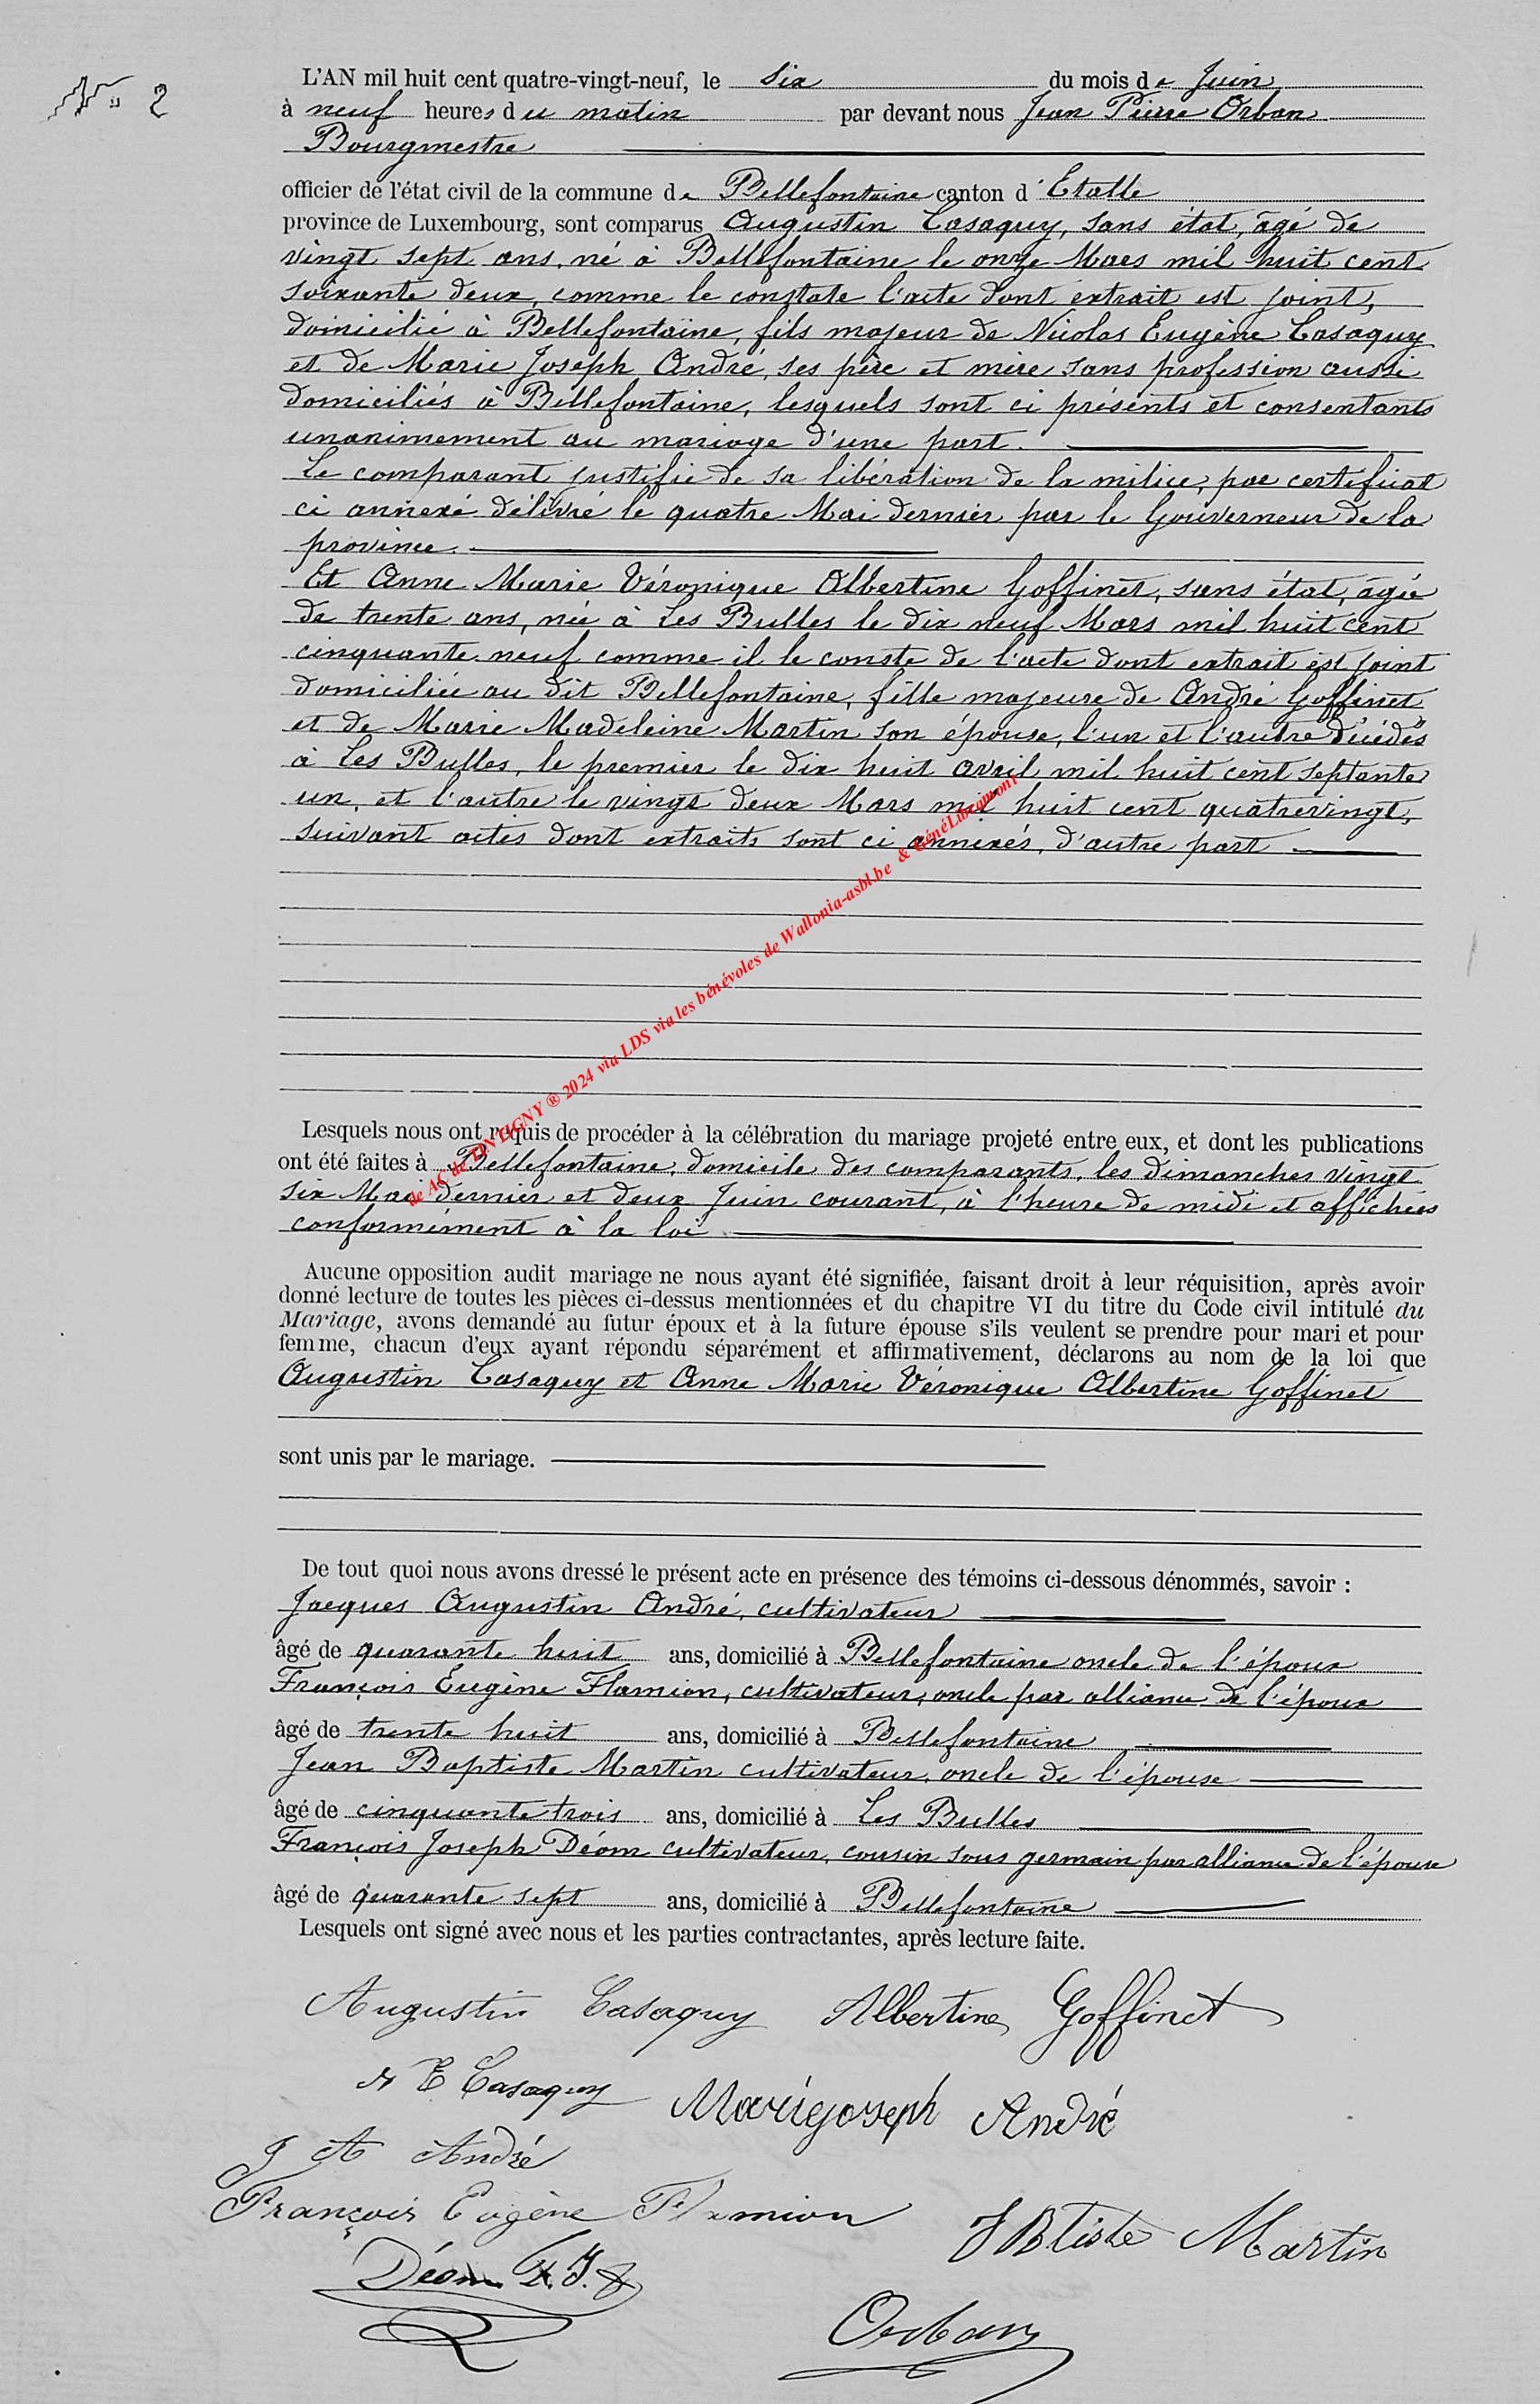 N° 2
L'AN mil huit cent quatre-vingt-neuf, le Six du mois de Juin
à neuf heures du matin par devant nous Jean Pierre Orban
Bourgmestre
officier de l'état civil de la commune de Bellefontaine canton d'Etalle
province de Luxembourg, sont comparus Augustin Casaquy, sans état, âgé de
vingt sept ans, né à Bellefontaine le onze Mars mil huit cent
soixante deux, comme le constate l'acte dont extrait est joint,
domicilié à Bellefontaine, fils majeur de Nicolas Eugène Casaquy
et de Marie Joseph André, ses père et mère sans profession aussi
domiciliés à Bellefontaine, lesquels sont ci présents et consentants
unanimement au mariage d'une part.
Le comparant justifie de sa libération de la milice, par certificat
ci annexé délivré le quatre Mai dernier par le Gouverneur de la
province.
Et Anne Marie Véronique Albertine Goffinet, sans état, âgée
de trente ans, née à Les Bulles le dix neuf Mars mil huit cent
cinquante neuf comme il le conste de l'acte dont extrait est joint
domiciliée au dit Bellefontaine, fille majeure de André Goffinet
et de Marie Madeleine Martin son épouse, l'un et l'autre décédés
à Les Bulles, le premier le dix huit avril mil huit cent septante
un, et l'autre le vingt deux Mars mil huit cent quatrevingt,
suivant actes dont extraits sont ci annexés, d'autre part
de AC de TINTIGNY ® 2024 via LDS via les bénévoles de Wallonia-asbl.be & GénéLibramont
Lesquels nous ont requis de procéder à la célébration du mariage projeté entre eux, et dont les publications
ont été faites à Bellefontaine, domicile des comparants, les dimanches vingt
six Mai dernier et deux Juin courant, à l'heure de midi et affichées
conformément à la loi
Aucune opposition audit mariage ne nous ayant été signifiée, faisant droit à leur réquisition, après avoir
donné lecture de toutes les pièces ci-dessus mentionnées et du chapitre VI du titre du Code civil intitulé du
Mariage, avons demandé au futur époux et à la future épouse s'ils veulent se prendre pour mari et pour
femme, chacun d'eux ayant répondu séparément et affirmativement, déclarons au nom de la loi que
Augustin Casaquy et Anne Marie Véronique Albertine Goffinet
sont unis par le mariage.
De tout quoi nous avons dressé le présent acte en présence des témoins ci-dessous dénommés, savoir :
Jacques Augustin André, cultivateur
âgé de quarante huit ans, domicilié à Bellefontaine oncle de l'époux
François Eugène Flamion, cultivateur, oncle par alliance de l'époux
âgé de trente huit ans, domicilié à Bellefontaine
Jean Baptiste Martin cultivateur, oncle de l'épouse
âgé de cinquante trois ans, domicilié à Les Bulles
François Joseph Déom cultivateur, cousin sous germain par alliance de l'épouse
âgé de quarante sept ans, domicilié à Bellefontaine
Lesquels ont signé avec nous et les parties contractantes, après lecture faite.
Augustin Casaquy Albertine Goffinet
N E Casaquy Marie joseph André
J A André
François Eugène Flamion JBtiste Martin
Déom F. J.
Orban